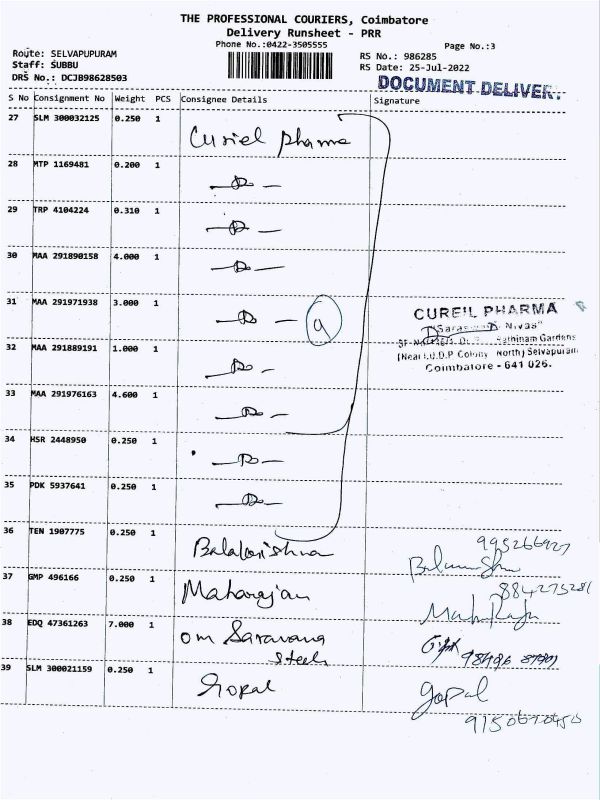 THE PROFESSIONAL COURIERS, Coimbatore
Delivery Runsheet - PRR
Phone No.:0422-3505555
Page No.:3
Route: SELVAPUPURAM
Staff: SUBBU
DRS No.: DCJB98628503
RS No.: 986285
RS Date: 25-Jul-2022
DOCUMENT DELIVER
S No Consignment No Weight PCS Consignee Details Signature
27 SLM 300032125 0.250 1 Curiel pharma
28 MTP 1169481 0.200 1
29 TRP 4104224 0.310 1
30 MAA 291890158 4.000 1
31 MAA 291971938 3.000 1 9
CUREIL PHARMA
"Saraswati Nivas"
Rathinam Gardens
(Near I.U.D.P Colony North) Selvapuram
Coimbatore - 641 026.
32 MAA 291889191 1.000 1
33 MAA 291976163 4.600 1
34 HSR 2448950 0.250 1
35 PDK 5937641 0.250 1
36 TEN 1907775 0.250 1 Balakrishna 995266927
37 GMP 496166 0.250 1 Maharajan 884275281
38 EDQ 47361263 7.000 1 om Saravana
Steels
39 SLM 300021159 0.250 1 Gopal Gopal